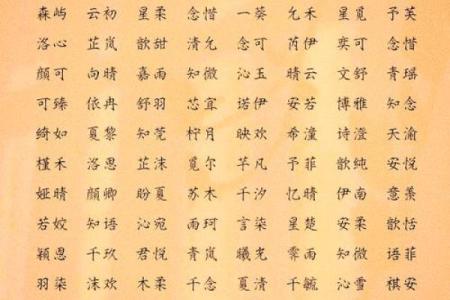 森屿 云初 星柔 念惜 一葵 允禾 星觅 予芙
洛心 芷岚 歆甜 清允 念可 芮伊 奕可 念惜
颜可 向晴 嘉雨 知微 沁玉 晴云 文舒 青瑶
可臻 依冉 舒羽 芯宜 诺伊 安若 博雅 知念
绮如 夏黎 知莞 柠月 映欢 希潼 诗滢 天渝
槿禾 洛思 芷沫 觅尔 芊凡 予菲 歆纯 安悦
娅晴 颜卿 盼夏 苏木 千汐 忆晴 伊南 意羡
若姣 知语 沁宛 雨珂 言染 星楚 安柔 歆恬
颖思 千玖 君悦 青岚 曦光 霁雨 知微 语菲
羽染 沫欢 木柔 千念 夏清 千毓 沁雪 祺安